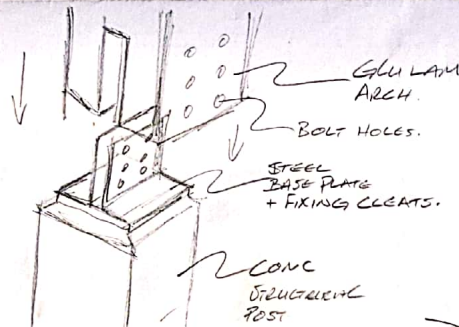 GLULAM
ARCH.
BOLT HOLES.
STEEL
BASE PLATE
+ FIXING CLEATS.
CONC
STRUCTURAL
POST